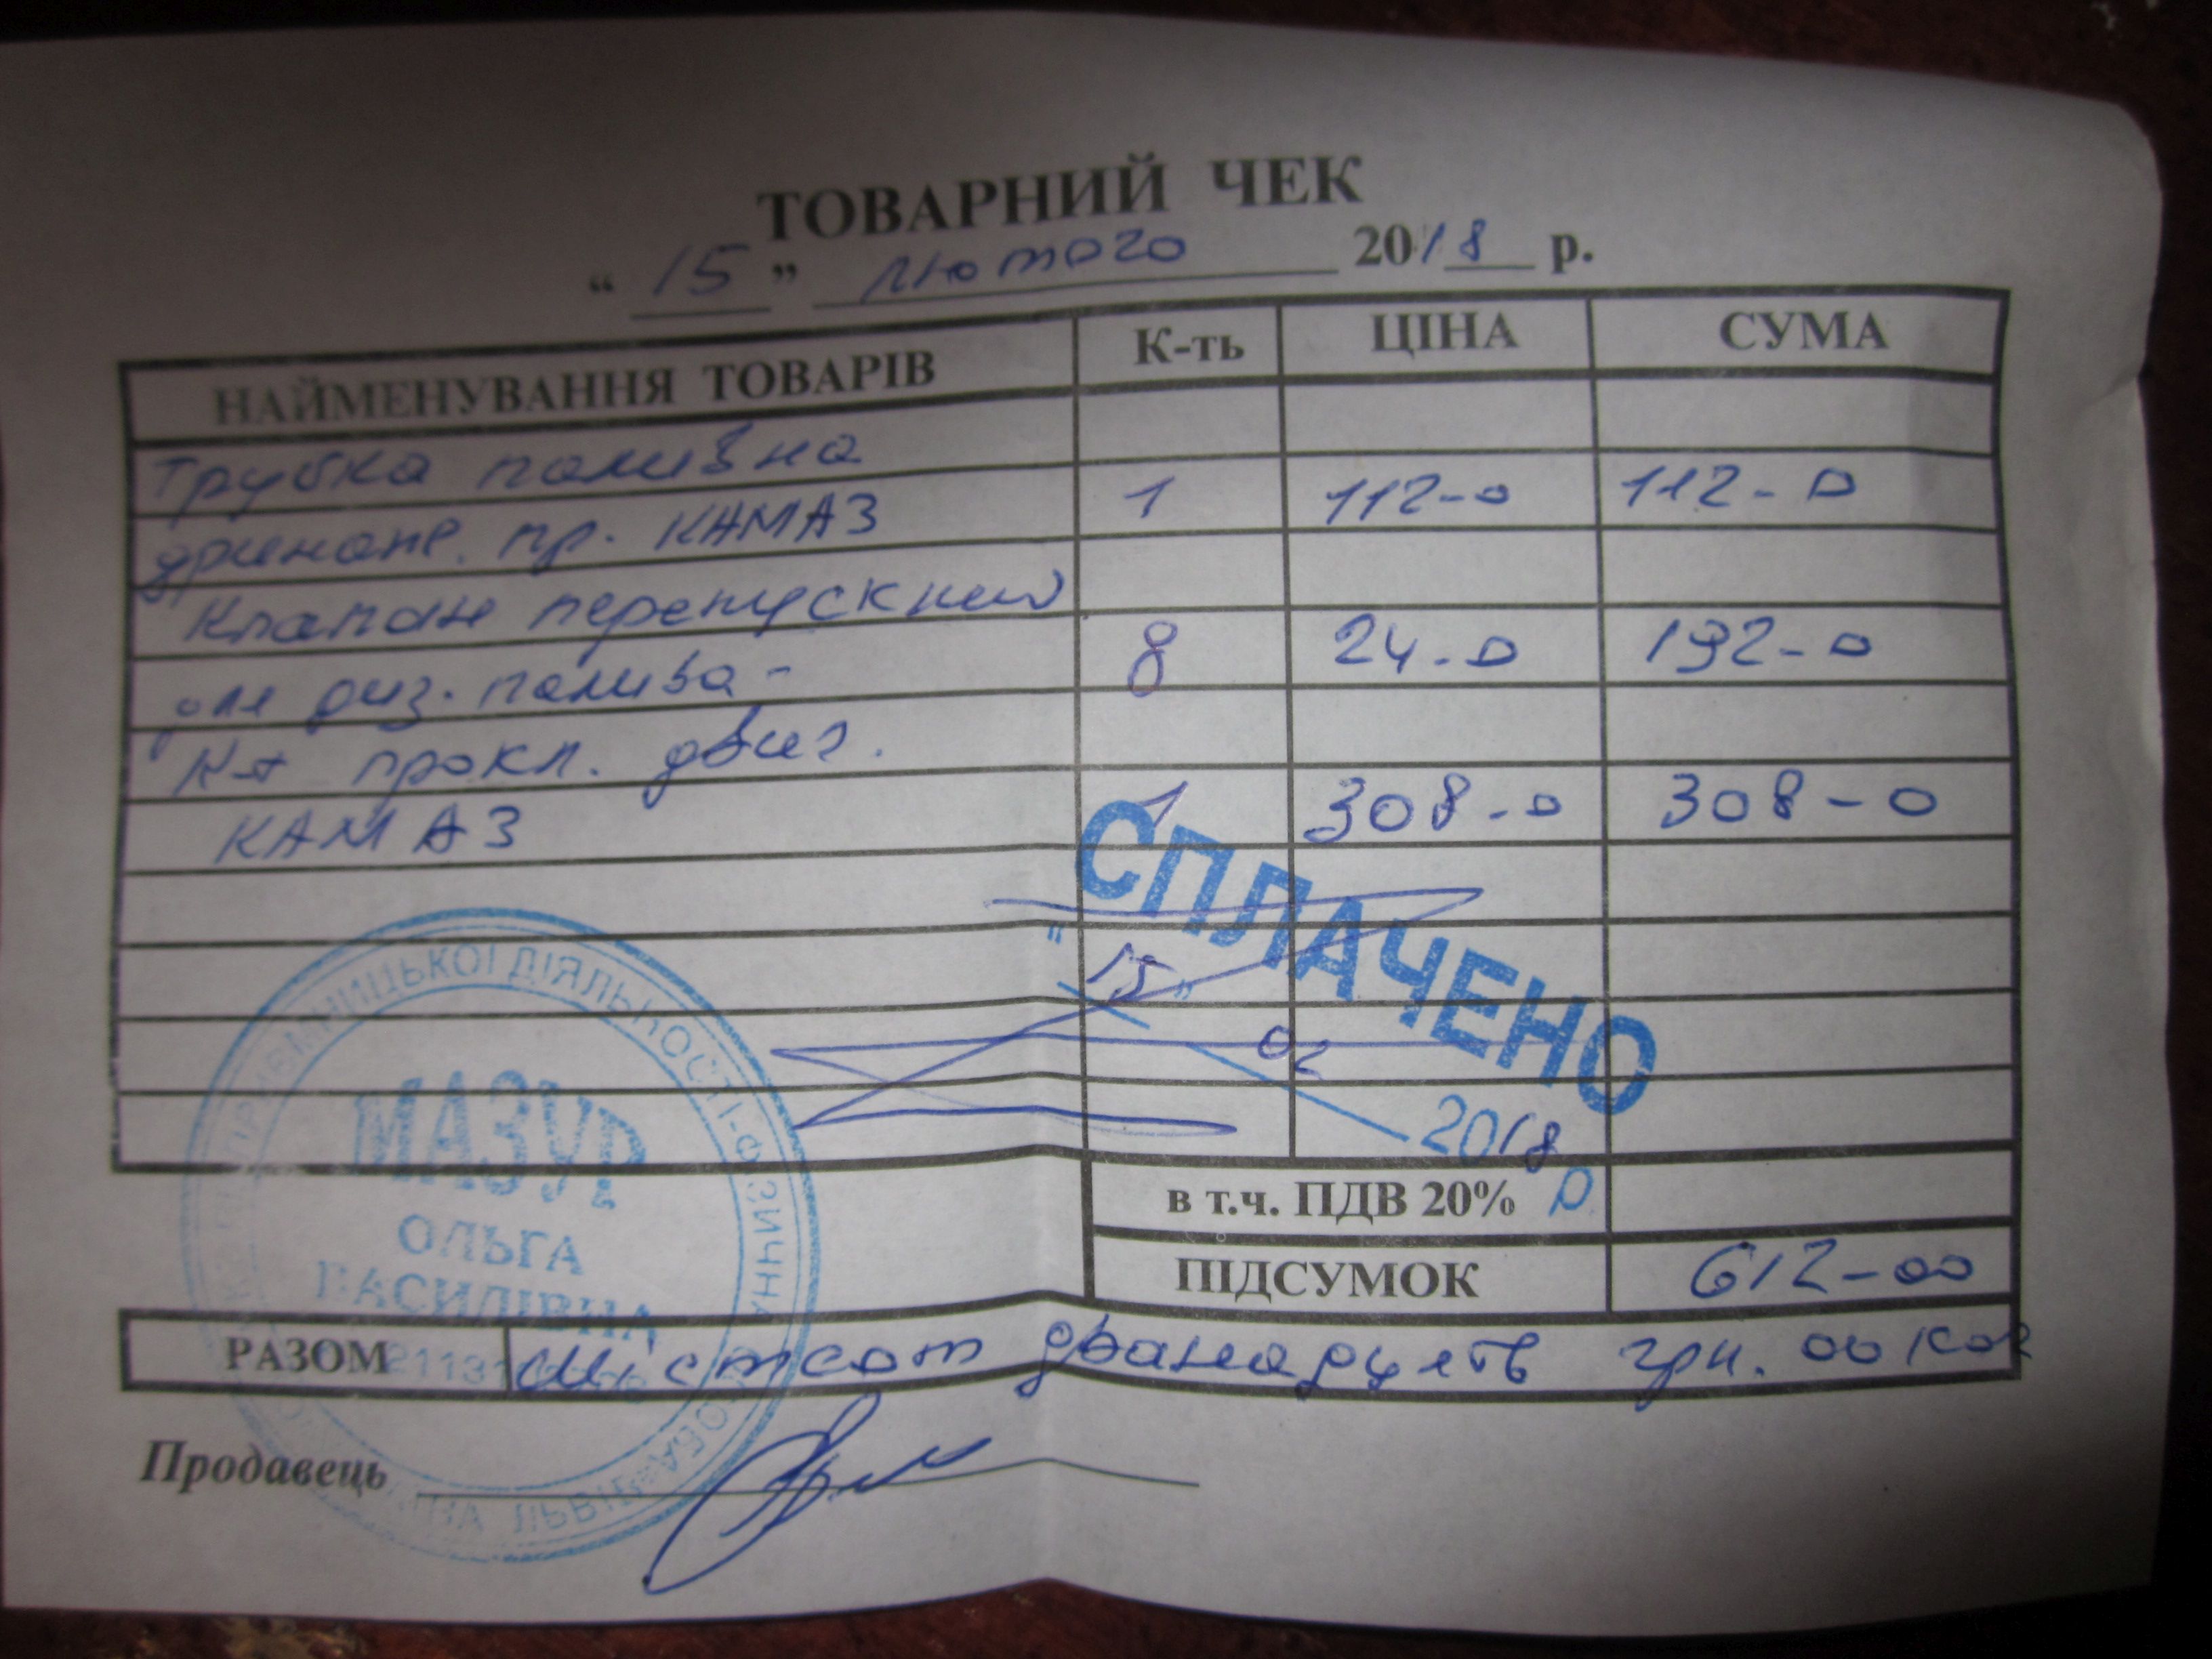 ТОВАРНИЙ ЧЕК
“ 15 ” лютого 2018 р.
НАЙМЕНУВАННЯ ТОВАРІВ К-ть ЦІНА СУМА
Трубка паливна
пр. КАМАЗ 1 112-0 112-0
Клапан перепускний
для диз. палива - 8 24-0 192-0
К-т прокл. двиг.
КАМАЗ 1 308-0 308-0
СПЛАЧЕНО
"15"
02
2018 р
в т.ч. ПДВ 20%
ПІДСУМОК 612-00
РАЗОМ Шістсот дванадцять грн. 00 коп
Продавець
ПІДПРИЄМНИЦЬКОЇ ДІЯЛЬНОСТІ-ФІЗИЧНА ОСОБА
МАЗУР
ОЛЬГА
ВАСИЛІВНА